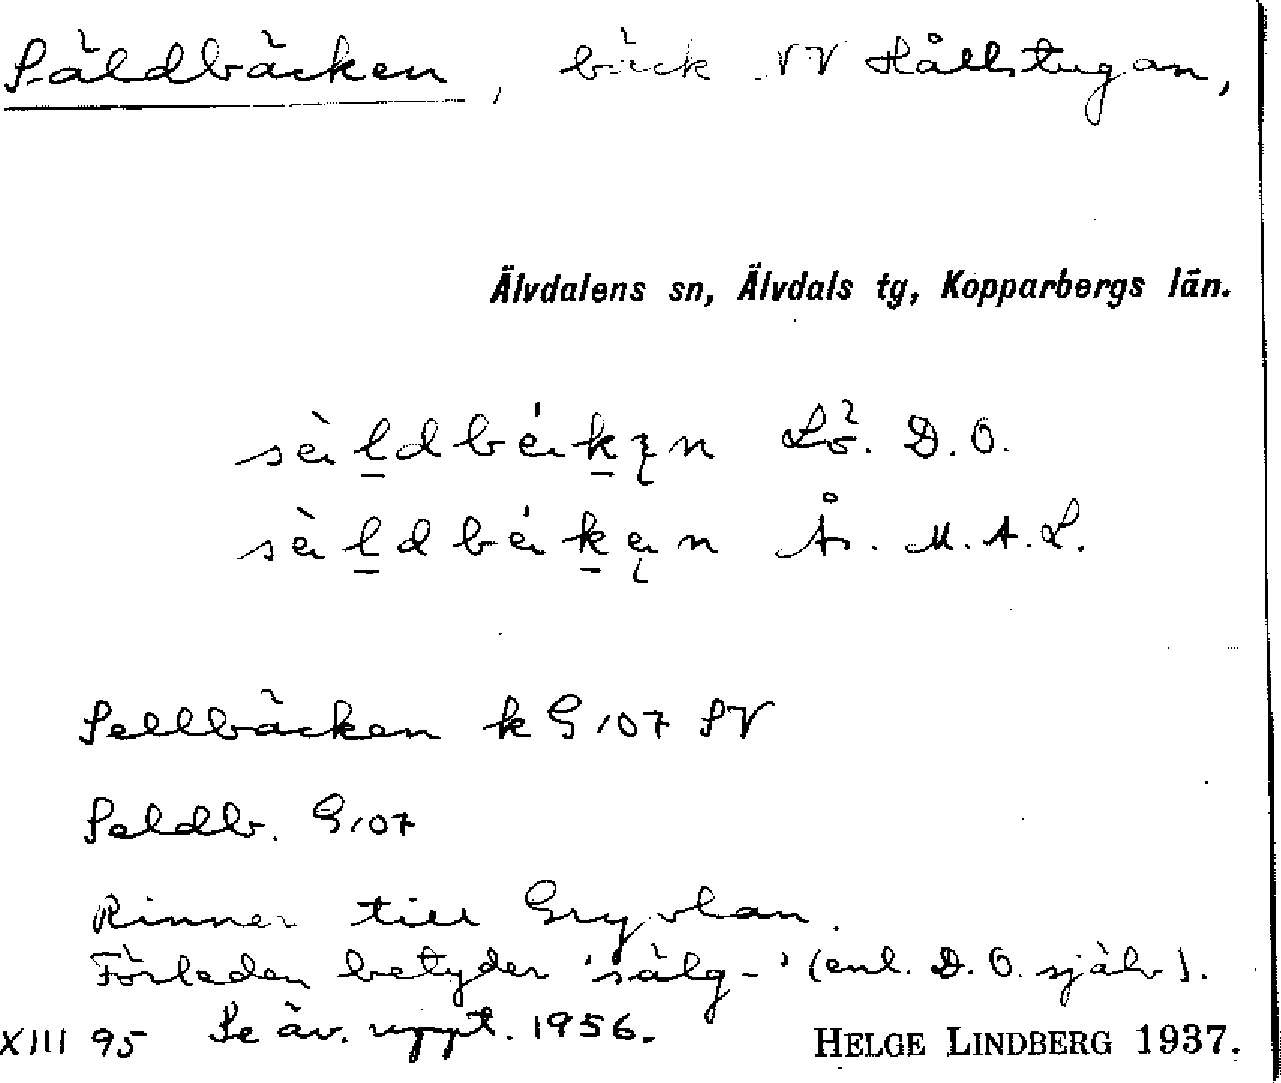 Säldbäcken, bäck NV Hållstugan,
Älvdalens sn, Älvdals tg, Kopparbergs län.
sä̀ḻdbä́ḵę̣n Lö̀. D.O.
sä̀ḻdbä́ḵęn Ås. M.A.L.
Sellbäcken k G 107 SV
Seldb. G 107
Rinner till Gryvlan.
Förleden betyder 'sälg-' (enl. D.O. själv).
XIII 95 Se äv. uppt. 1956.
HELGE LINDBERG 1937.